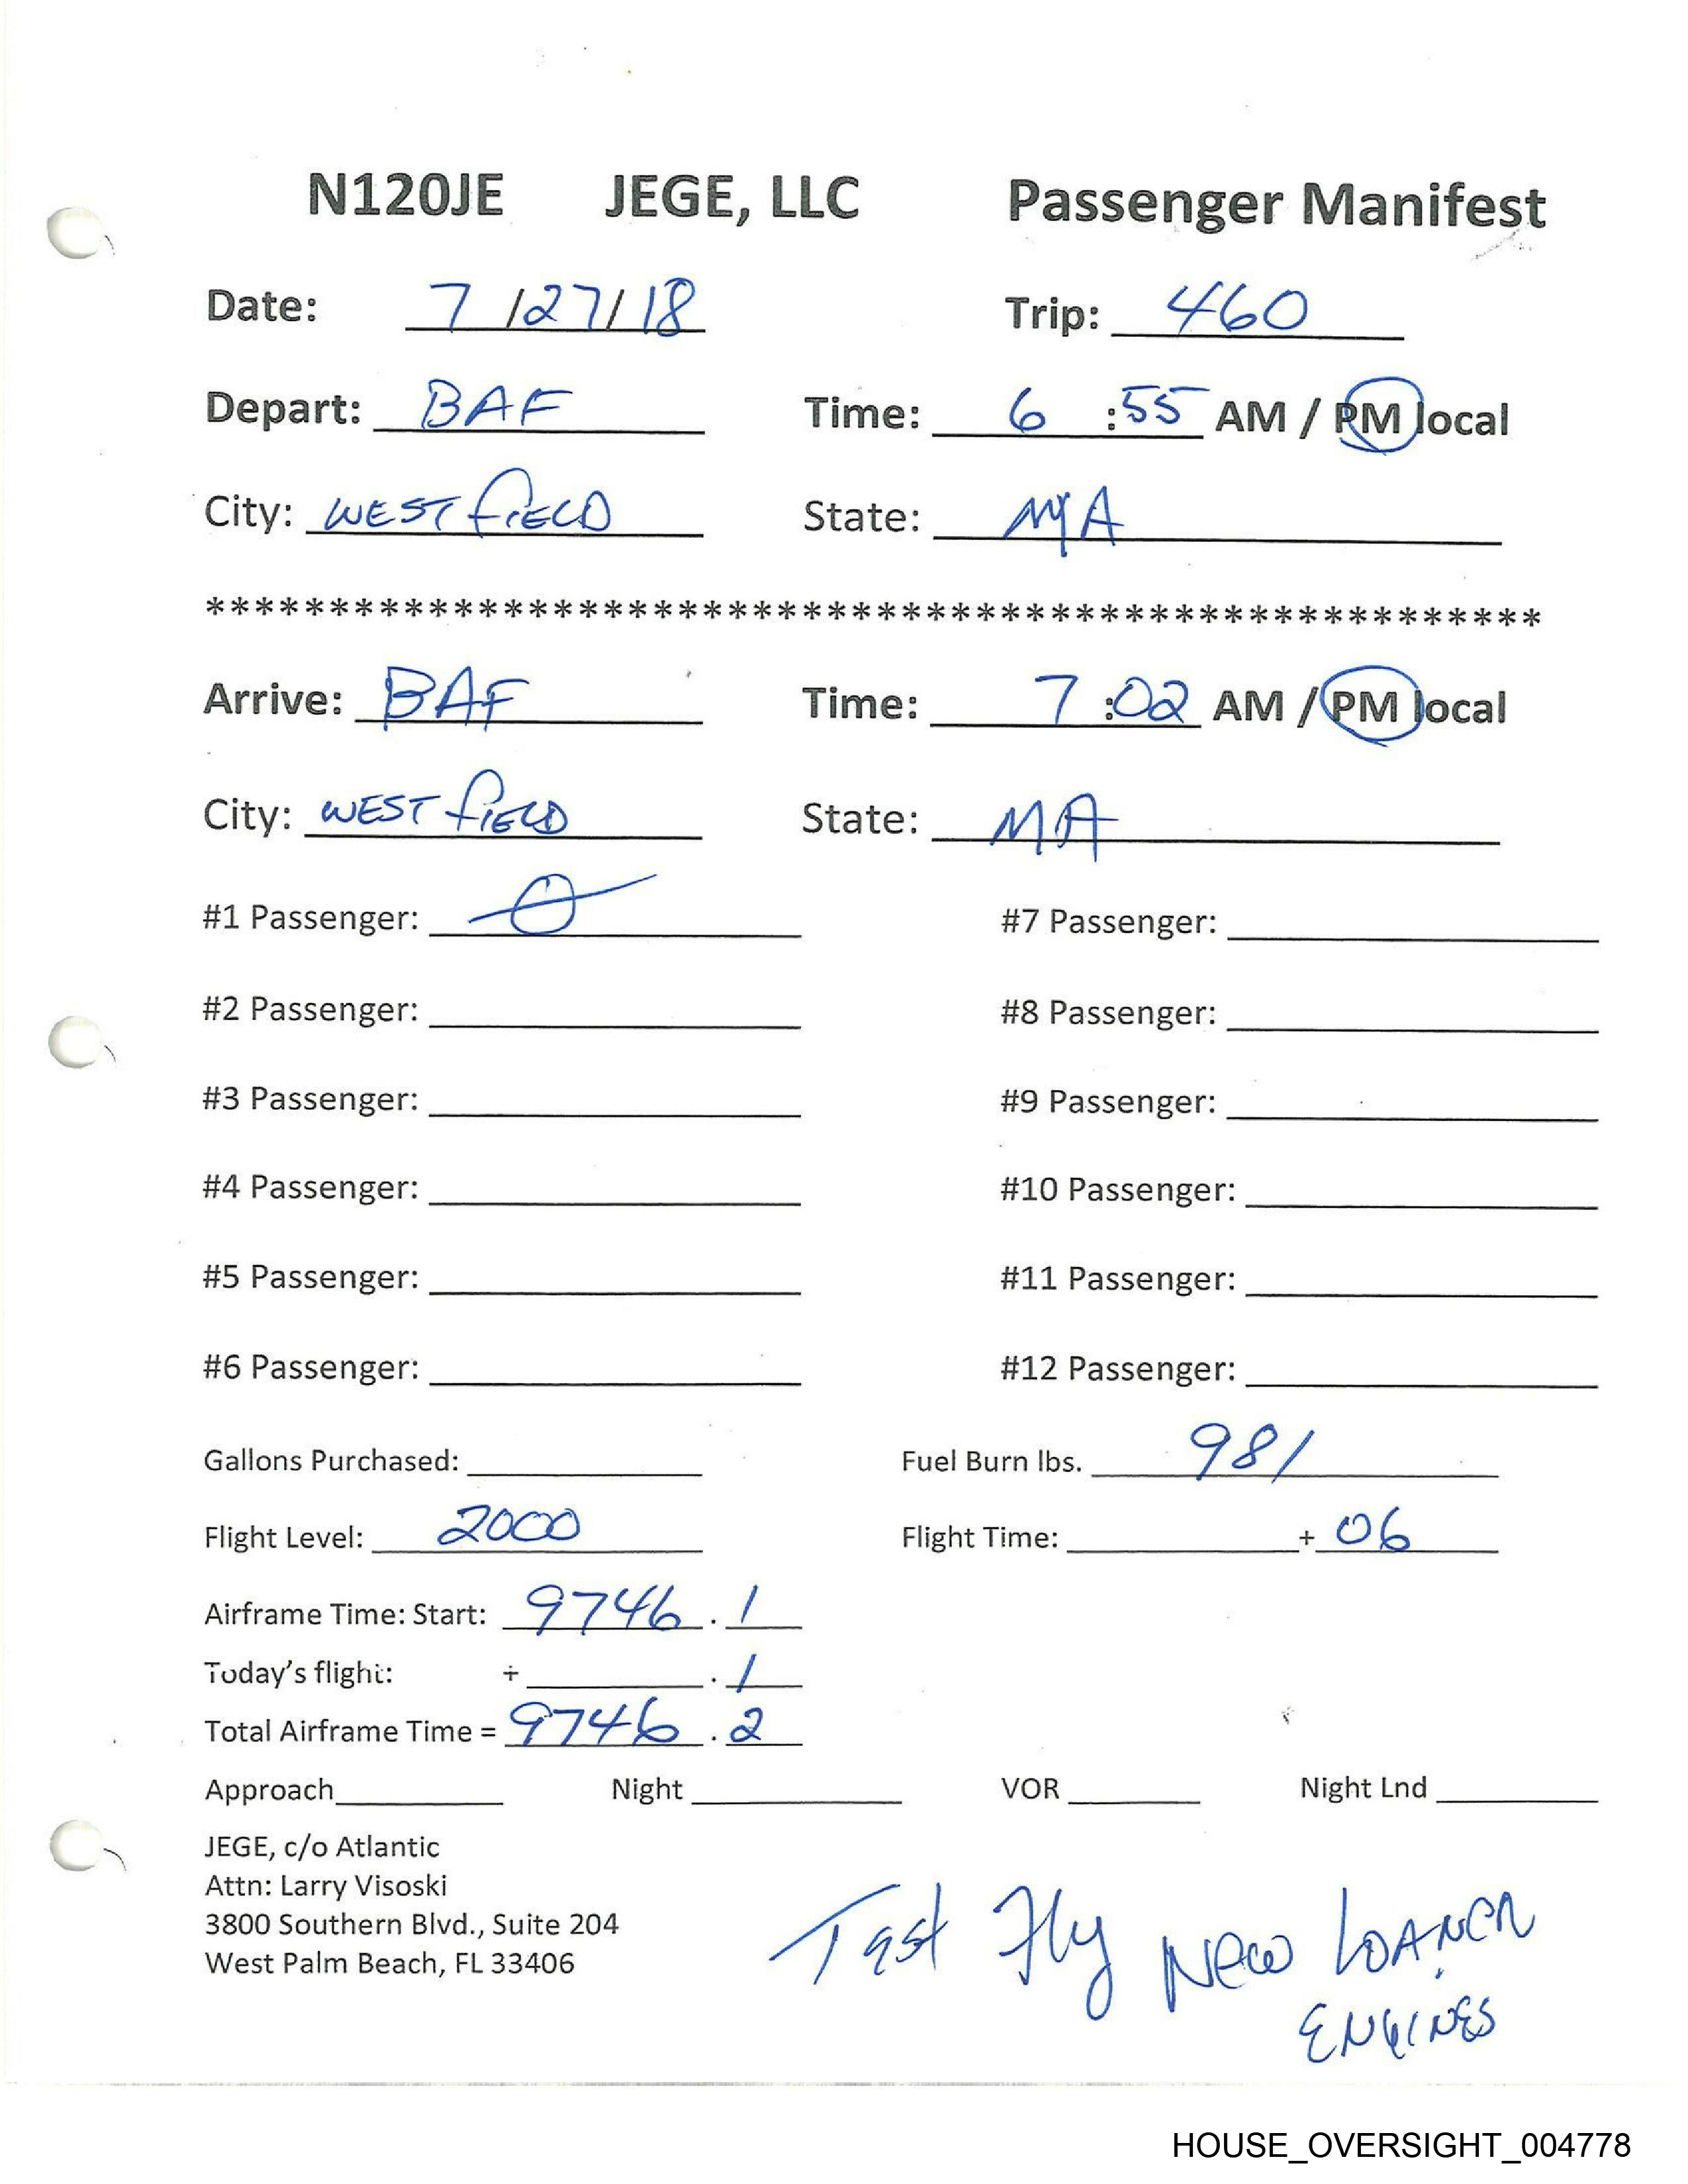 N120JE JEGE, LLC Passenger Manifest
Date: 7/27/18 Trip: 460
Depart: BAF Time: 6:55 AM / PM local
City: WESTfIELD State: MA
******************************************************
Arrive: BAF Time: 7:02 AM / PM local
City: WESTfIELD State: MA
#1 Passenger: 0 #7 Passenger:
#2 Passenger: #8 Passenger:
#3 Passenger: #9 Passenger:
#4 Passenger: #10 Passenger:
#5 Passenger: #11 Passenger:
#6 Passenger: #12 Passenger:
Gallons Purchased: Fuel Burn lbs. 981
Flight Level: 2000 Flight Time: + 06
Airframe Time: Start: 9746.1
Today's flight: + .1
Total Airframe Time = 9746.2
Approach Night VOR Night Lnd
JEGE, c/o Atlantic
Attn: Larry Visoski
3800 Southern Blvd., Suite 204
West Palm Beach, FL 33406
Test Fly New LOANER
ENGINES
HOUSE_OVERSIGHT_004778